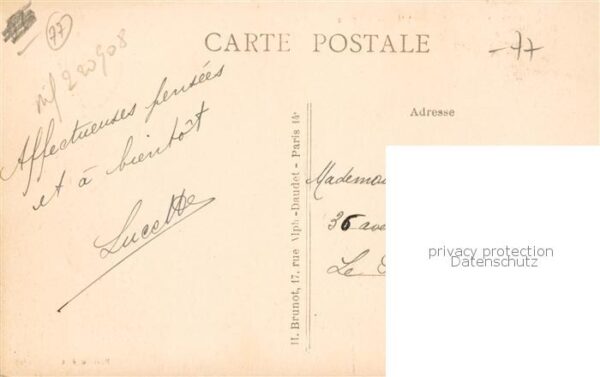 77
CARTE POSTALE
-77
Adresse
Affectueuses pensées
et à bientôt
Lucette
H. Brunot, 17, rue Alph-Daudet - Paris 14e
Mademoi
36 ave
Le
privacy protection
Datenschutz